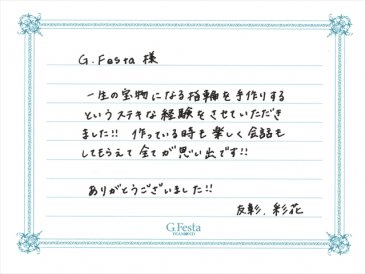 G.Festa 様
一生の宝物になる指輪を手作りする
というステキな経験をさせていただき
ました!! 作っている時も楽しく会話も
してもらえて全てが思い出です!!
ありがとうございました!!
友彰、彩花
G.Festa